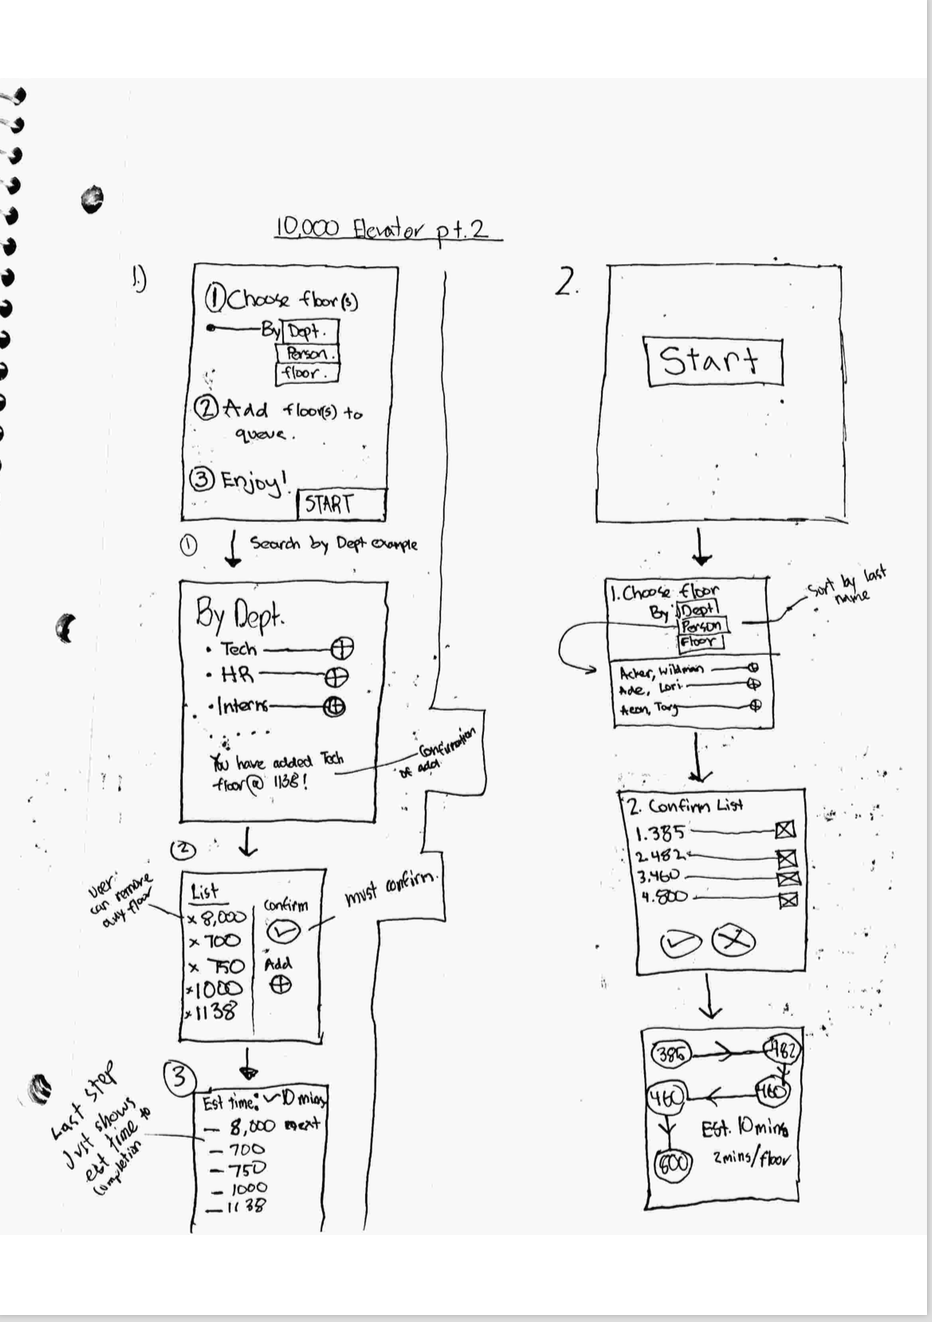 10,000 Elevator pt.2
1.)
① Choose floor(s)
By Dept.
Person.
floor.
② Add floor(s) to
queue.
③ Enjoy!
START
① Search by Dept example
By Dept.
• Tech
• HR
• Interns
.....
You have added Tech
floor @ 1138!
Confirmation
of add
②
User
can remove
any floor
List
x 8,000
x 700
x 750
x 1000
x 1138
Confirm
Add
must confirm.
③
Last step
Just shows
est time to
completion
Est time: ~10 mins
– 8,000 next
– 700
– 750
– 1000
– 1138
2.
Start
1. Choose floor
By: Dept
Person
Floor
Sort by last
name
Acker, Wildman
Ade, Lori
Aeon, Torg
2. Confirm List
1. 385
2. 482
3. 460
4. 800
385
482
460
460
800
Est. 10 mins
2mins/floor